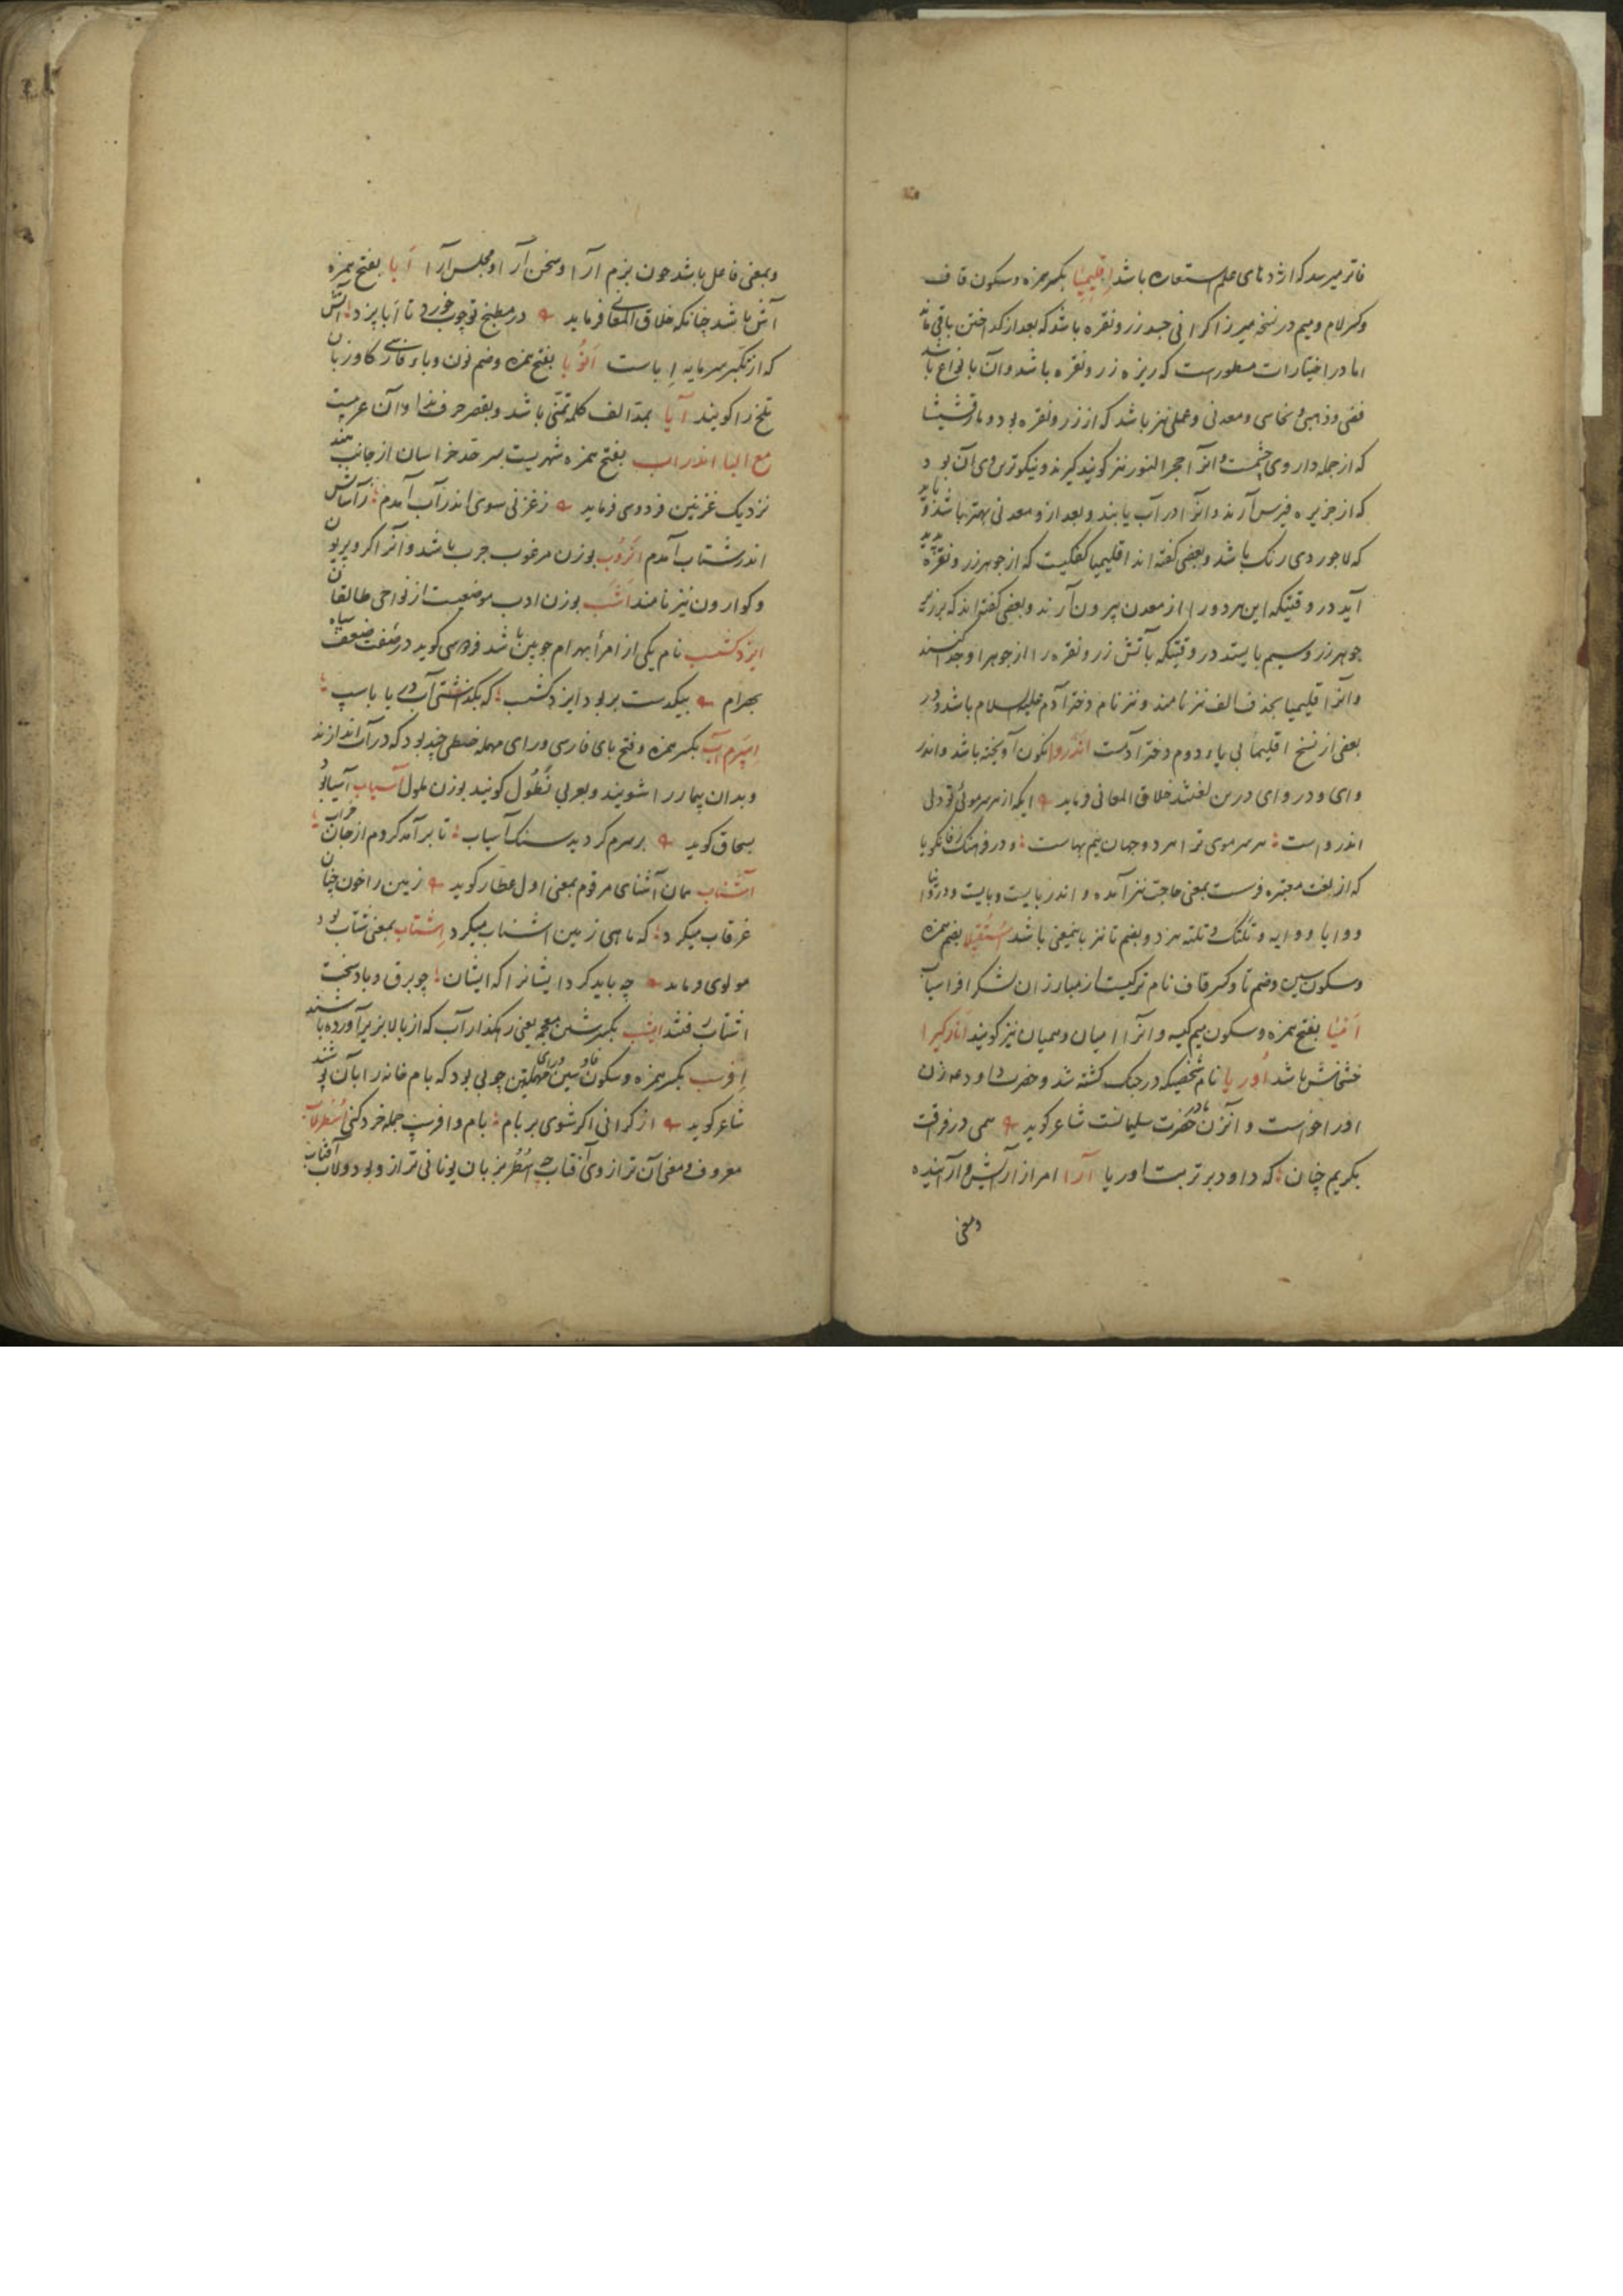 فاتر میرسد که اژدهای علم استعاره باشد اِقلیمِیا بکسر همزه و سکون قاف
وکسر لام و میم در نسخه میرزا کرانی جسد زر و نقره باشد که بعد از گداختن باقی ماند
اما در اختیارات مسطور است که ریزه زر و نقره باشد و آن بانواع باشد
فضی و ذهبی و نحاسی و معدنی و عملی نیز باشد که از زر و نقره بود و مارقشیشا
که از جمله داروی چشمست و آنرا حجر النور نیز کویند کیرند و نیکوترین وی آن بود
که از جزیره قبرس آرند و آنرا در آب یابند و بعد ازو معدنی بهتر باشد و باید
که لاجوردی رنک باشد و بعضی کفته اند اقلیمیا کفکیست که از جوهر زر و نقره پدید
آید در وقتیکه این هر دو را از معدن بیرون آرند و بعضی کفته اند که بر زبر
جوهر زر و سیم بایستد در وقتیکه بآتش زر و نقره را از جوهر او جدا کنند
و آنرا قلیمیا بحذف الف نیز نامند و نیز نام دختر آدم علیه السلام باشد و در
بعضی از نسخ اقلیما بی یاء دوم دختر آدمست اندروا نکون آویخته باشد و اندر
وای و دروای درین لغتند خلاق المعانی فرماید ایکه از هر سر موئی تو دلی
اندرواست هر سر موی ترا هر دو جهان نیم بهاست و در فرهنک زفانکویا
که از لغت معتبره فرست بمعنی حاجت نیز آمده و اندر بایست و بایست و دروا
و وایا و وایه و تلنک و تلنه هر دو بضم تا نیز باینمعنی باشد اُستُقیلا بضم همزه
وسکون سین و ضم تا و کسر قاف نام ترکیست از مبارزان لشکر افراسیاب
اَمْیَا بفتح همزه و سکون میم کیسه و آنرا امیان و همیان نیز کویند انارکیرا
خشخاش باشد اُوریا نام شخصیکه در جنک کشته شد و حضرت داود عم زن
او را خواست و آنزن مادر حضرت سلیمانست شاعر کوید همی در فراقت
بکریم چنان که داود بر تربت اوریا آرا امر از آرایش و آراینده
و بمعنی
و بمعنی فاعل باشد چون بزم آرا و سخن آرا و مجلس آرا اَبا بفتح همزه
آش باشد چنانکه خلاق المعانی فرماید در مطبخ تو چوب خورد تا ابا پزد آتش
که از تکبر سرمایه اِباست اَنُوبا بفتح همزه و ضم نون و باء فارسی کاوزبان
تلخ را کویند آیا بمد الف کلمه تمنی باشد و بقصر حرف ندا و آن عربیست
مع البا اندراب بفتح همزه شهریست بسرحد خراسان از جانب هند
نزدیک غزنین فردوسی فرماید ز غزنی سوی اندرآب آمدم ز آسایش
اندر شتاب آمدم اَزوُب بوزن مرغوب جرب باشد و آنرا کر و بریون
و کوارون نیز نامند اَشَب بوزن ادب موضعیست از نواحی طالقان
ایزدکشسب نام یکی از امرأ بهرام چوبین باشد فردوسی کوید در صفت ضعف سپاه
بهرام بیکدست بر بود ایزد کشسب که بکذشتی آب دریا باسپ
اِسپَرم آب بکسر همزه و فتح بای فارسی و رای مهمله خلطی چند بود که در آب اندازند
و بدان بیمار را شویند و بعربی نَطُول کویند بوزن ملول آسیاب آسیا بود
بسحاق کوید بر سرم کردید سنک آسیاب تا بر آمد کردم از جان خراب
آشناب همان آشنای مرقوم بمعنی اول عطار کوید زمین را خون چنان
غرقاب میکرد که ماهی زمین اشناب میکرد اِشتاب بمعنی شتاب بود
مولوی فرماید چه باید کرد ایشانرا که ایشان چو برق و باد سخت
اشتاب فتند ایشب بکسر شین معجمه یعنی رهکذار آب که از بالا بزیر آورده باشند
اِفرسب بکسر همزه و سکون فا و سین و رای مهملتین چوبی بود که بام خانه را بآن پوشند
شاعر کوید از کرانی اکر شوی بر بام بام و افرسپ جمله خرد کنی اُسْطُرلاب
معروف و معنی آن ترازوی آفتاب چه اُسْطُر بزبان یونانی ترازو بود و لاب آفتاب